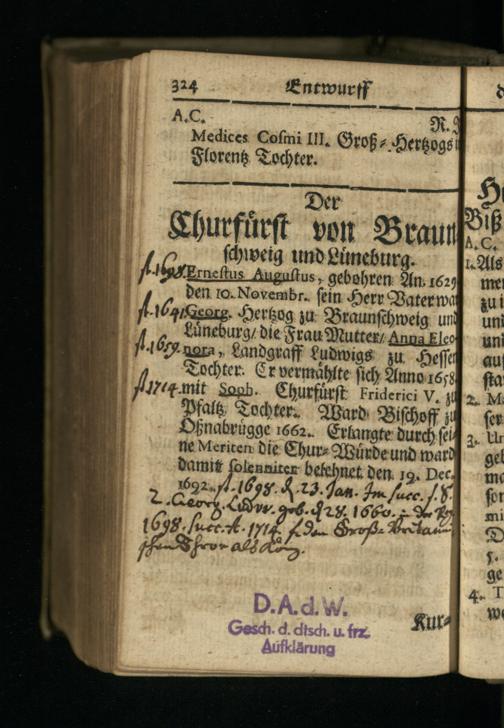 324 Entwurff
A.C. R.
Medices Cosmi III. Groß-Hertzogs
Florentz Tochter.
Der
Churfürst von Braun
schweig und Lüneburg.
st. 1698. Ernestus Augustus, gebohren An. 1629
den 10. Novembr. sein Herr Vater war
st. 1641. Georg. Hertzog zu Braunschweig und
Lüneburg/ die Frau Mutter/ Anna Eleo-
st. 1659. nora, Landgraff Ludwigs zu Hessen
Tochter. Er vermählte sich Anno 1658
st. 1714. mit Soph. Churfürst Friderici V. zu
Pfaltz Tochter. Ward Bischoff zu
Oßnabrügge 1662. Erlangte durch sei-
ne Meriten die Chur-Würde und ward
damit solenniter belehnet den 19. Dec.
1692. st. 1698. d. 23. Jan. Im succ. s. S.
2. Georg. Ludw. geb. d. 28. 1660. in der
1698. succ. A. 1714. den Groß-Britanni
schen Thron als König.
D.A.d.W.
Gesch. d. dtsch. u. frz.
Aufklärung
Kur-
H
Biß
A.C.
1. Als
mer
zu i
und
uni
auf
sta
2. M
ser
3. Ur
geb
ma
son
mi
D
5.
ge
4. T
we